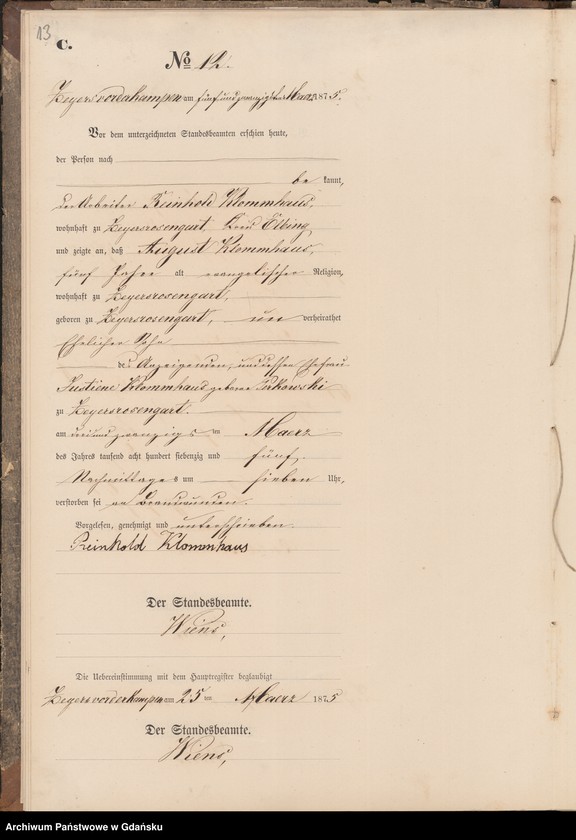 13
C.
No 12.
Zeyersvorderkampen am fünfundzwanzigsten Maerz 1875.
Vor dem unterzeichneten Standesbeamten erschien heute,
der Person nach
be kannt,
der Arbeiter Reinhold Klommhaus,
wohnhaft zu Zeyersrosengart, Kreis Elbing
und zeigte an, daß August Klommhaus,
fünf Jahre alt evangelischer Religion,
wohnhaft zu Zeyersrosengart,
geboren zu Zeyersrosengart, un verheirathet
Ehelicher Sohn
des Anzeigenden, und dessen Ehefrau
Justiene Klommhaus geborne
zu Zeyersrosengart.
am zwanzigsten Maerz
des Jahres tausend acht hundert siebenzig und fünf,
Nachmittags um sieben Uhr,
verstorben sei an Brandwunden.
Vorgelesen, genehmigt und unterschrieben.
Reinhold Klommhaus
Der Standesbeamte.
Wiens,
Die Uebereinstimmung mit dem Hauptregister beglaubigt
Zeyersvorderkampen am 25 ten Maerz 1875
Der Standesbeamte.
Wiens,
Archiwum Państwowe w Gdańsku